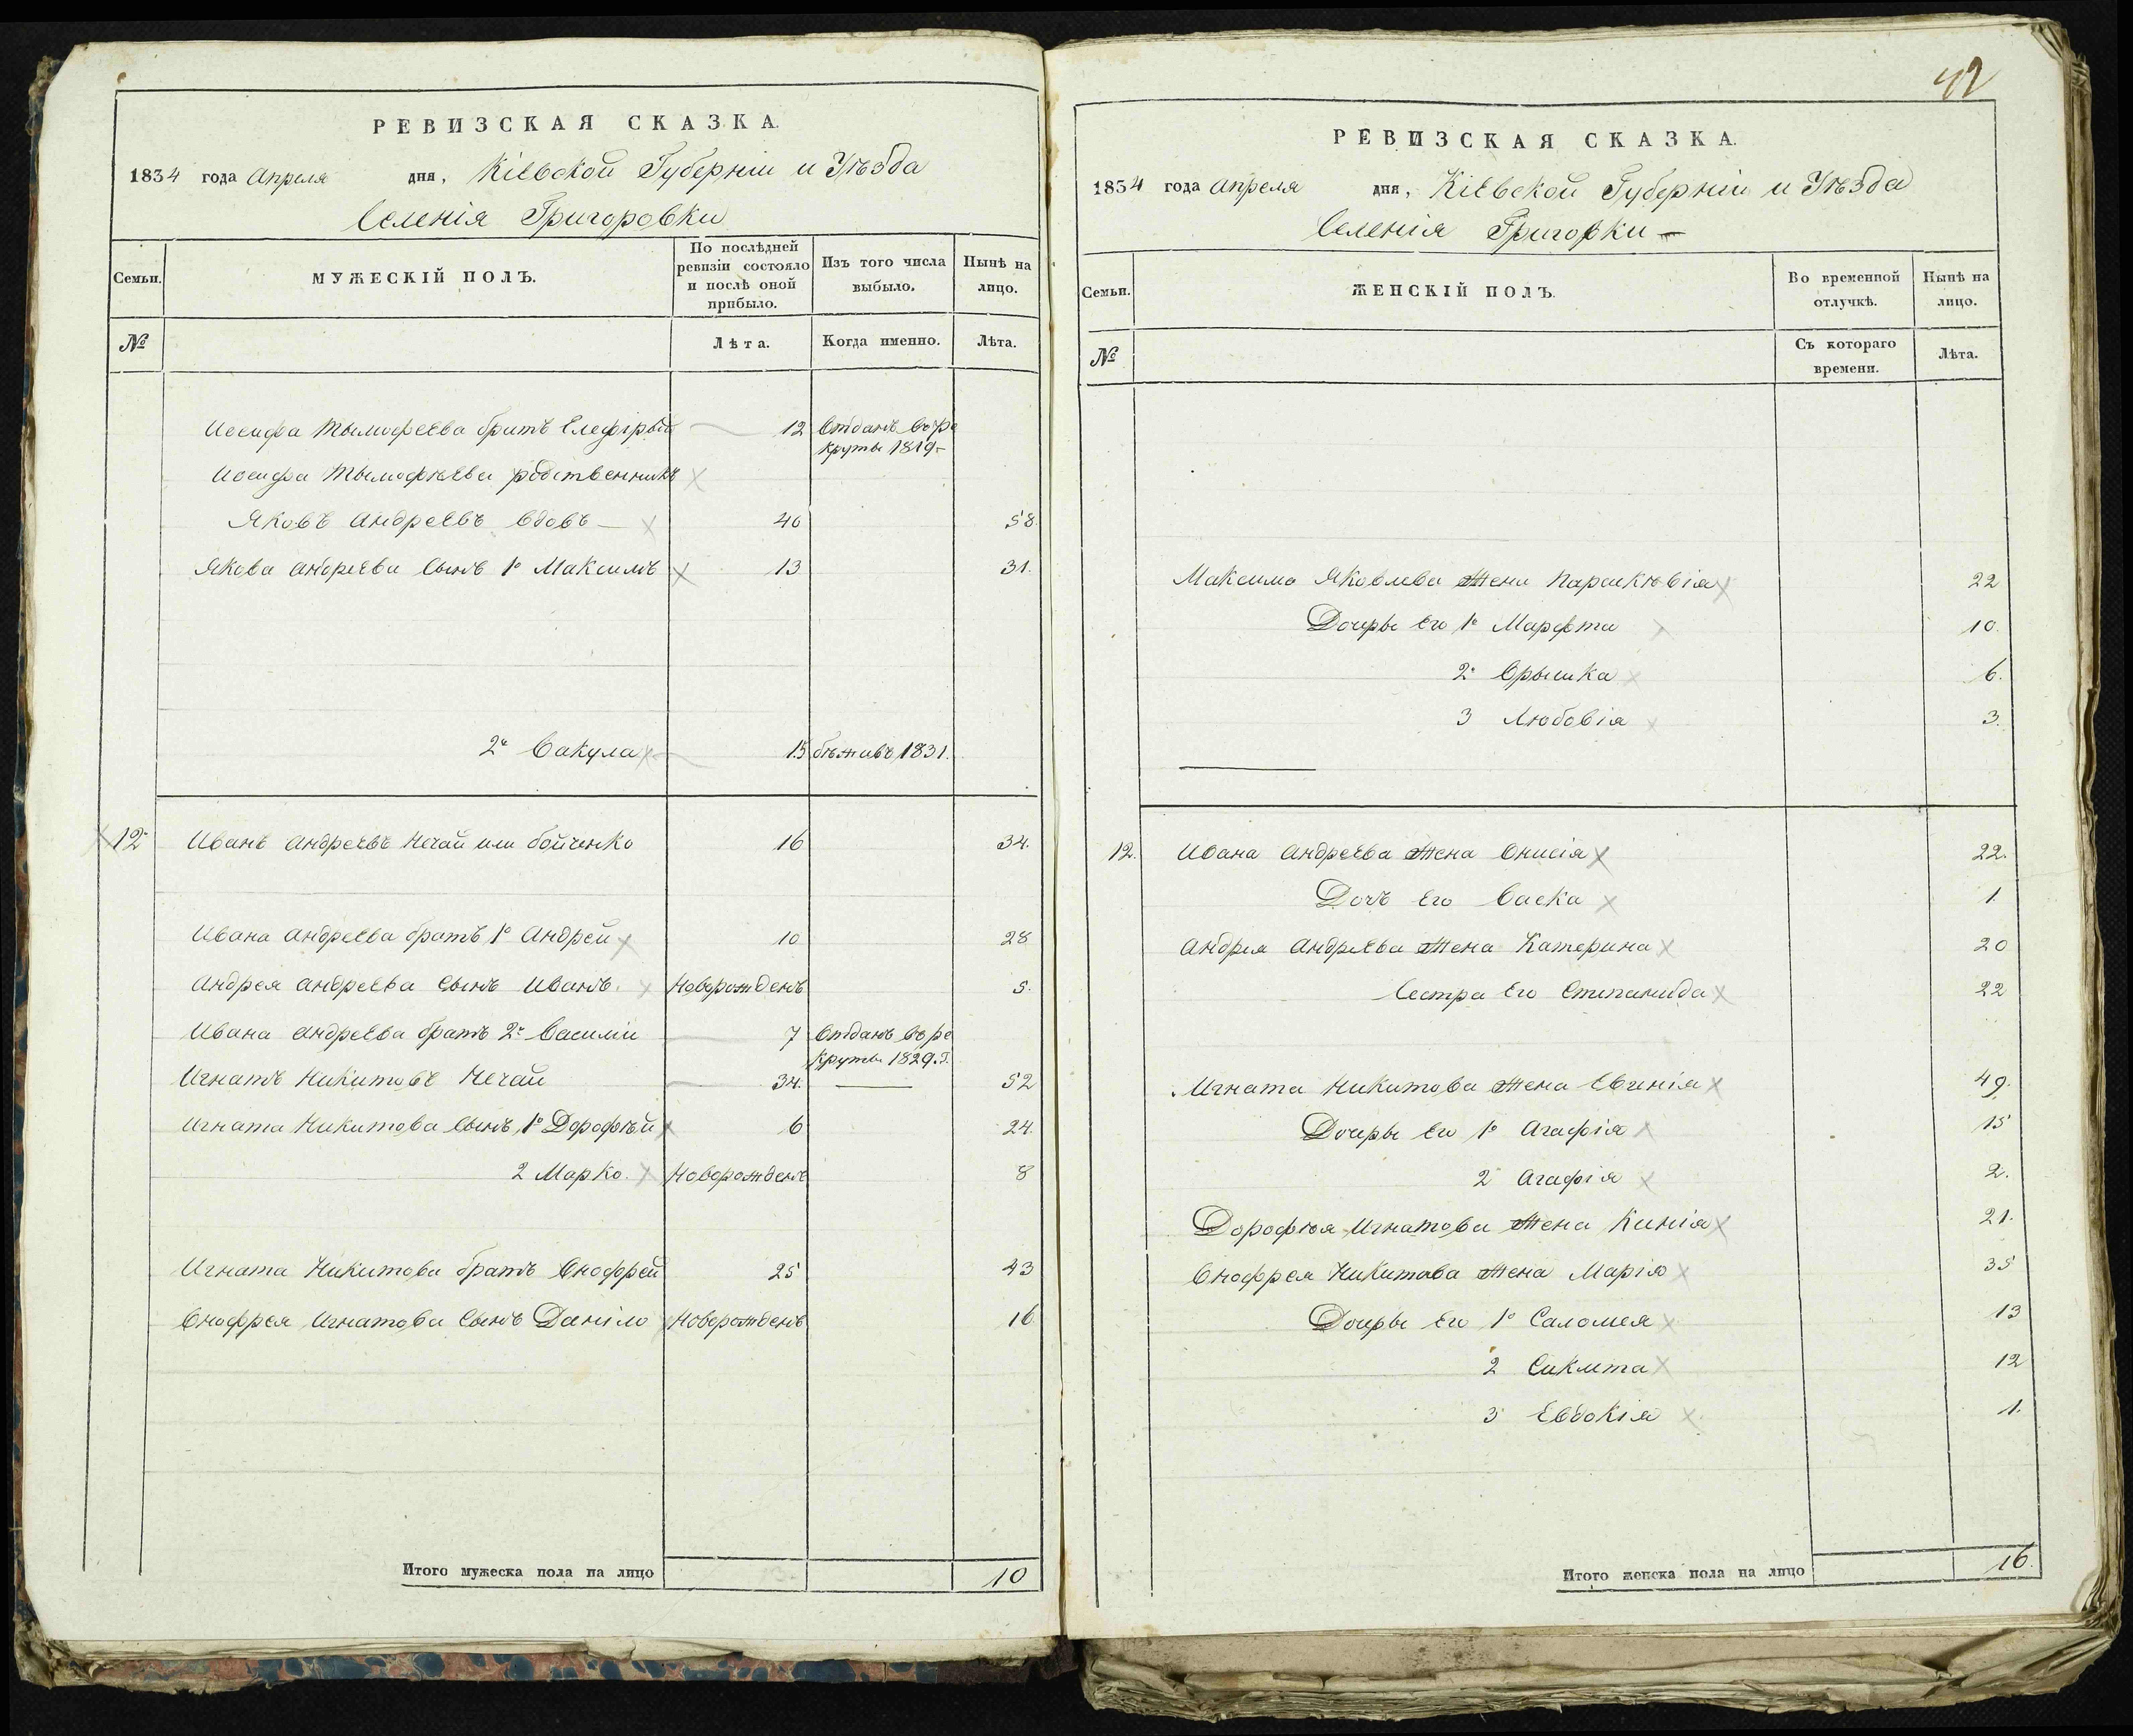 РЕВИЗСКАЯ СКАЗКА.
1834 года Апреля дня, Кіевской Губерніи и Уѣзда
Селенія Григоровки
Семьи.
МУЖЕСКІЙ ПОЛЪ.
По послѣдней ревизіи состояло и послѣ оной прибыло.
Изъ того числа выбыло.
Нынѣ на лицо.
№
Лѣта.
Когда именно.
Лѣта.
Иосифа Тымофеева братъ 12 Отданъ въ ре
круты 1819
Иосифа Тымофѣева родственникъ
Яковъ Андреевъ вдовъ 40 58.
Якова Андреева Сынъ 1й Максимъ 13 31.
2й Вакула 15 бѣжавъ 1831.
12 Иванъ Андреевъ Нечай или бойченко 16 34.
Ивана Андреева братъ 1й Андрей 10 28
Андрея Андреева Сынъ Иванъ. Новорожденъ 5.
Ивана Андреева братъ 2й Василій 7 Отданъ въ ре
круты 1829.г.
Игнатъ Никитовъ Нечай 34. 52
Игната Никитова Сынъ, 1й Дорофѣй 6 24.
2 Марко. Новорожденъ 8
Игната Никитова братъ Оноффрей 25 43
Оноффрея Игнатова Сынъ Даніло Новорожденъ 16
Итого мужеска пола на лицо 10
42
РЕВИЗСКАЯ СКАЗКА.
1834 года Апреля дня, Кіевской Губерніи и Уѣзда
Селенія Григорки
Семьи.
ЖЕНСКІЙ ПОЛЪ.
Во временной отлучкѣ.
Нынѣ на лицо.
№
Съ котораго времени.
Лѣта.
Максима Яковлева Жена Параскѣвія 22
Дочеры Его 1я Марфта 10.
2я Орышка 6.
3 Любовія 3.
12. Ивана Андреева Жена Онисія 22.
Дочъ Его Васка 1
Андрея Андреева Жена Катерина 20
Сестра Его Степанида 22
Игната Никитова Жена Евгенія 49.
Дочеры Его 1я Агафія 15
2 Агафія 2.
Дорофѣя Игнатова Жена Кинія 21.
Оноффрея Никитова Жена Марія 35
Дочеры Его 1я Саломея 13
2 12
3 Евдокія 1.
Итого женска пола на лицо 16.